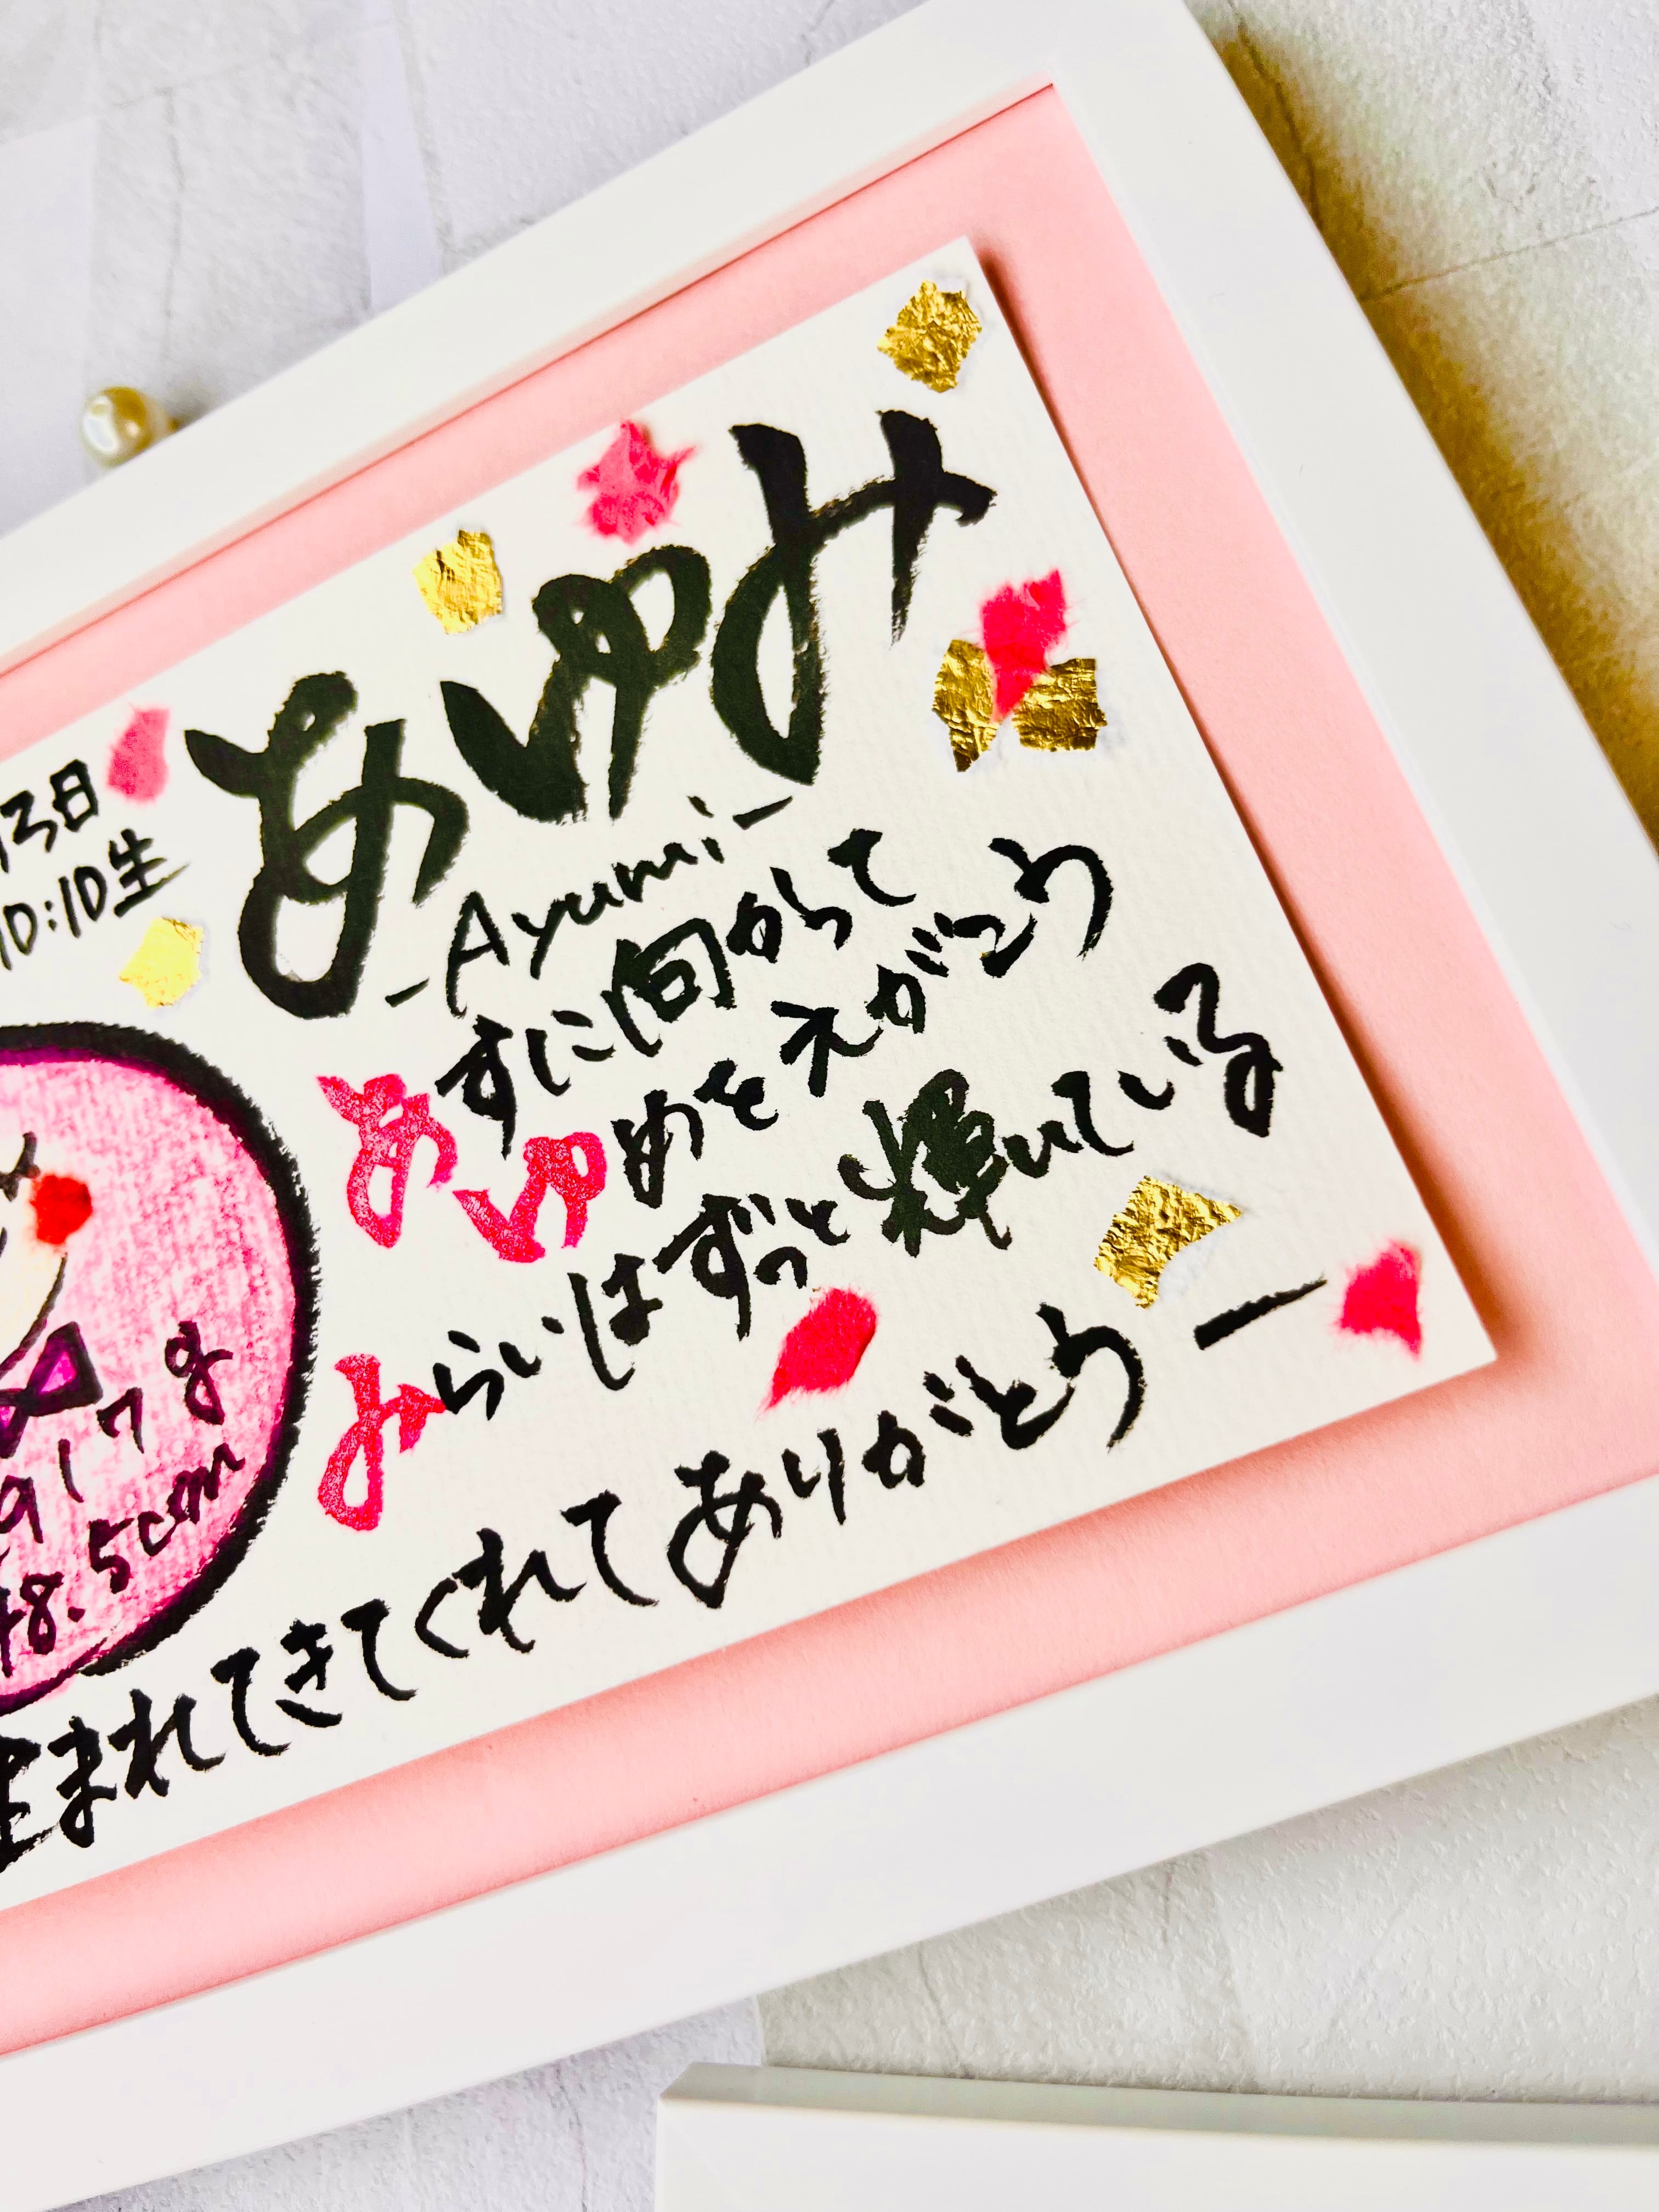 3日
10:10生
あゆみ
-Ayumi-
あすに向かって
ゆめをえがこう
みらいはずっと輝いている
917g
48.5cm
生まれてきてくれてありがとう